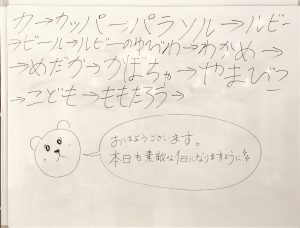 カ→カッパ→パラソル→ルビー
→ビール→ルビーのゆびわ→わかめ→
→めだか→かぼちゃ→やまびこ
→こども→ももたろう→
おはようございます。
本日も素敵な1日になりますように☆